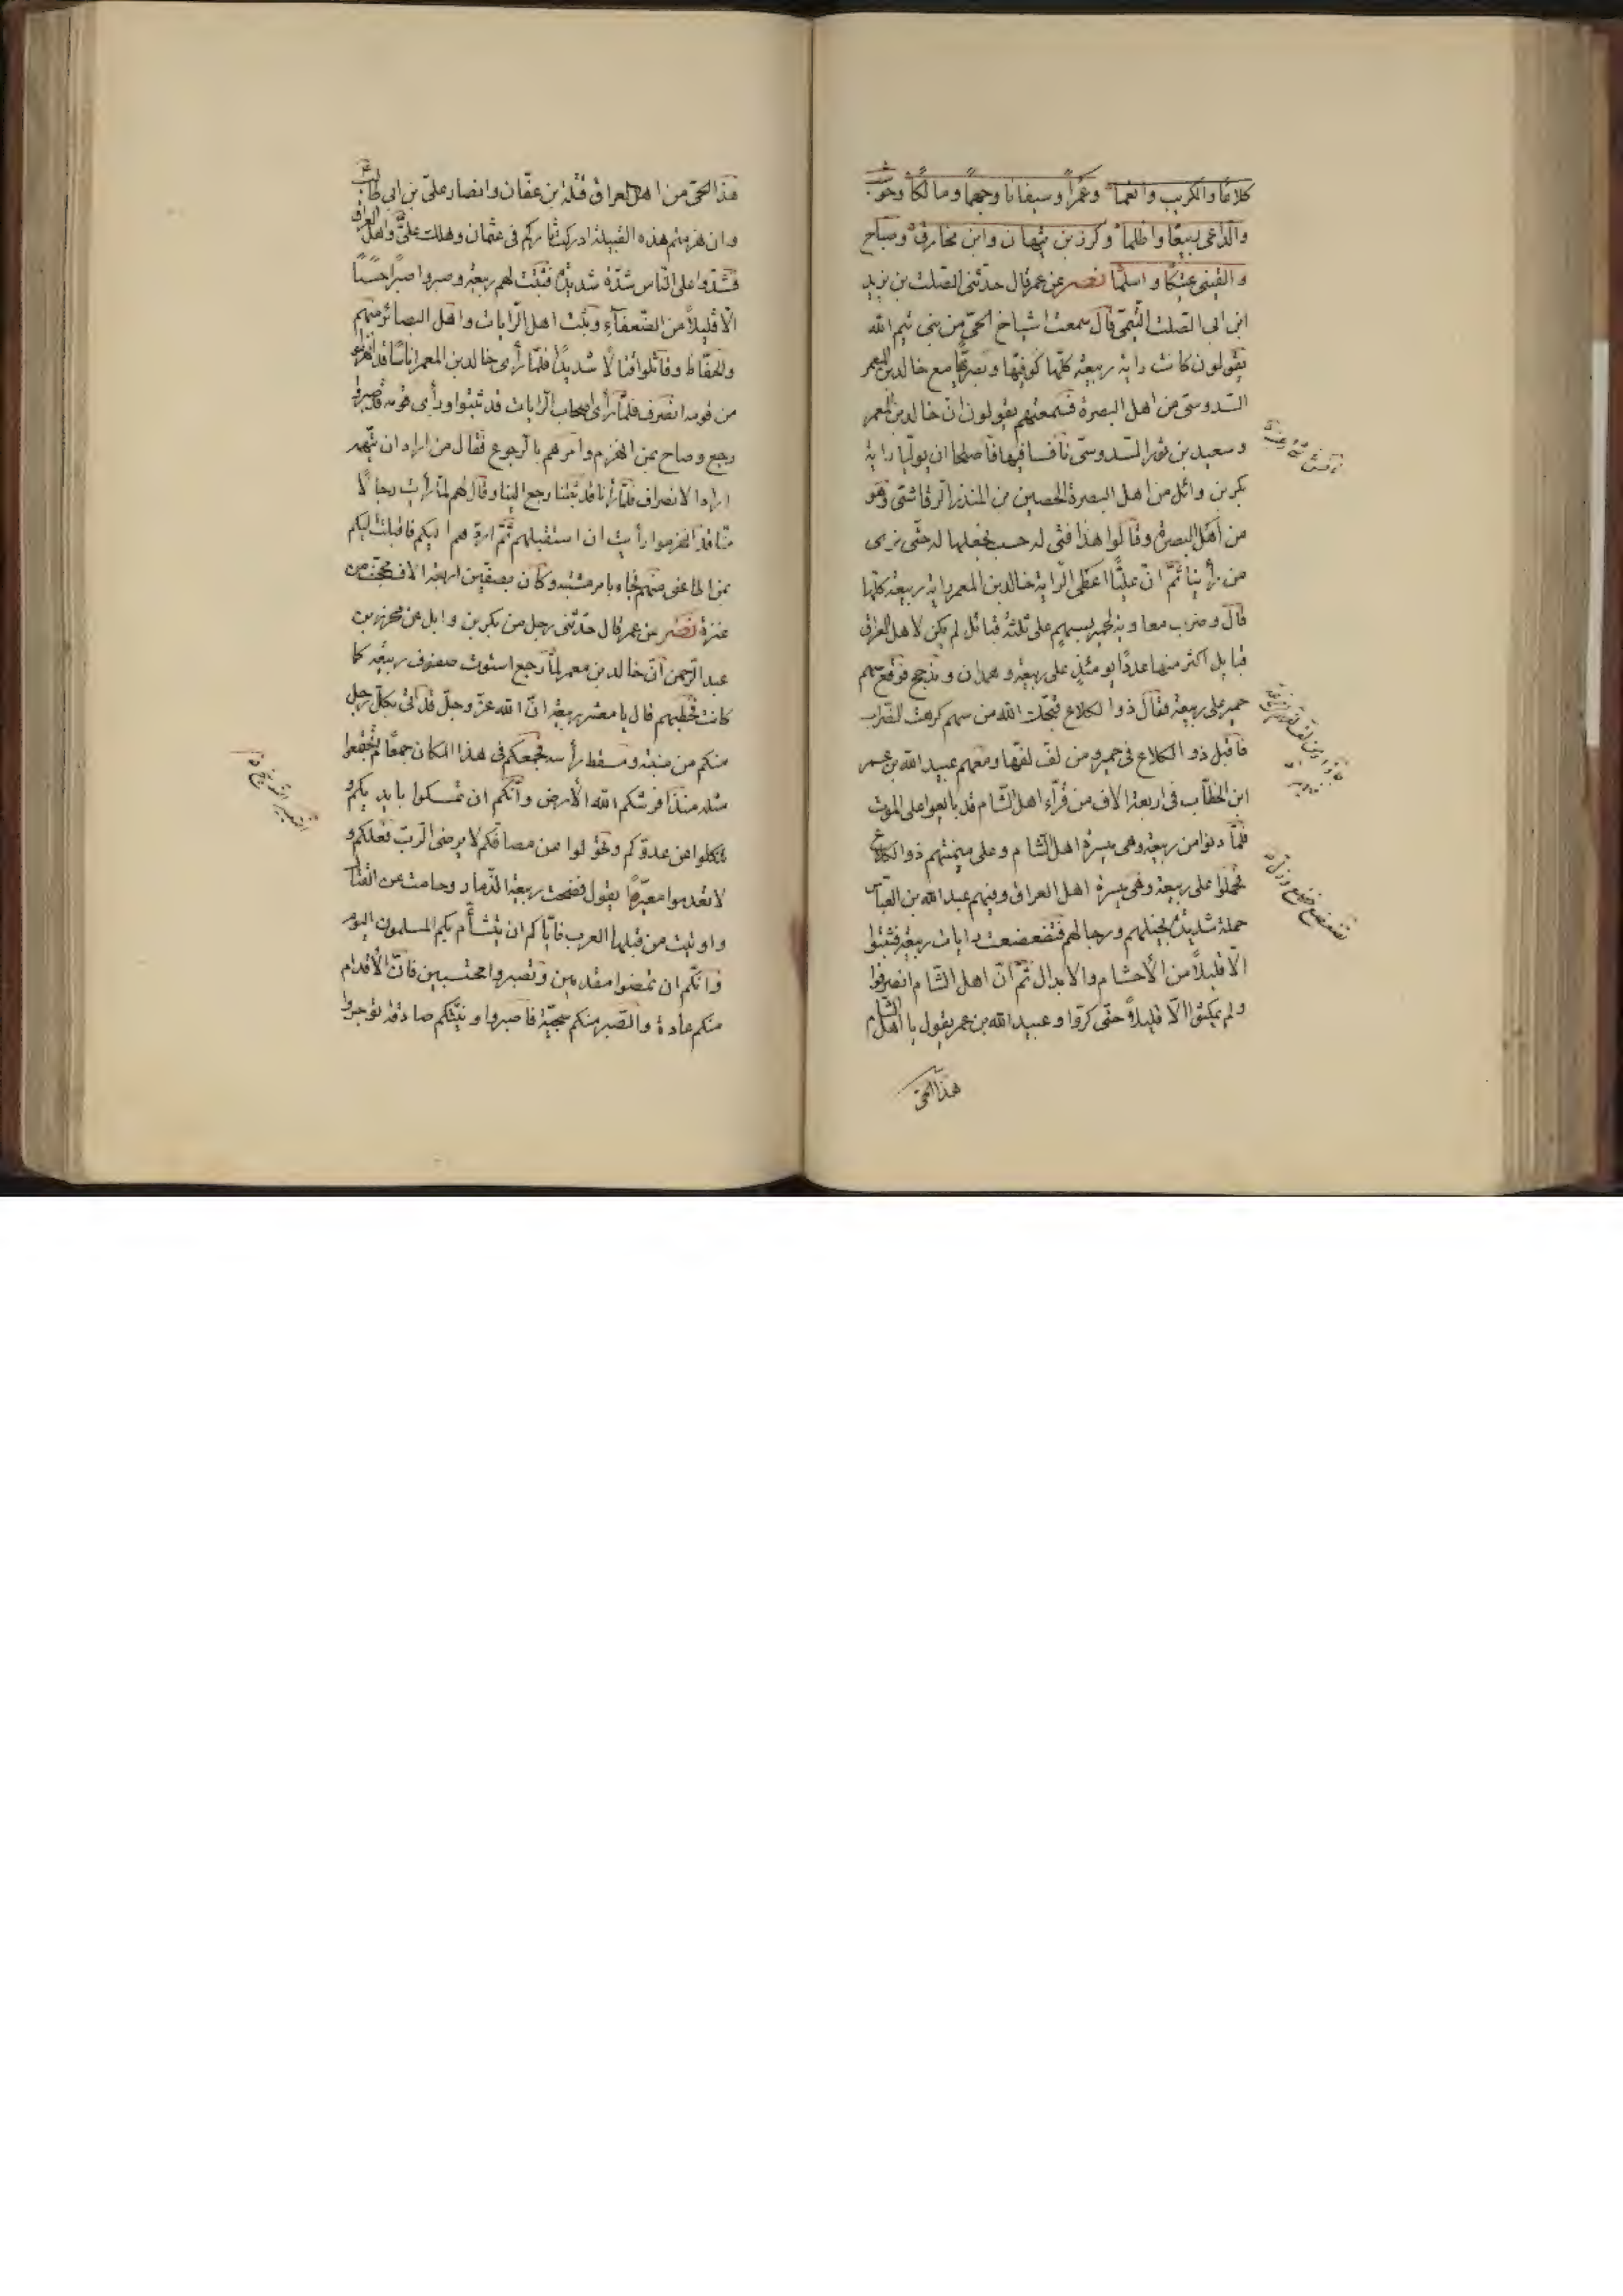 كلاعًا والكريب وانعما وعمرًا وسيفانا وجهما ومالكًا وحوشب
والداعى يبيعًا واظلما وكرز بن نبهان وابن محارق وصباح
والقينى عتيكًا واسلمًا نصر عن عمر قال حدثنى الصلت بن يزيد
ابن ابى الصلت التيمى قال سمعت اشياخ الحى من بنى تيم الله
يقولون كانت راية ربيعة كلها كوفيها وبصريها مع خالد بن المعمر
السدوسى من اهل البصرة فسمعتهم يقولون ان خالد بن المعمر
وسعيد بن ثور السدوسى تنافسا فيها فاصلحا ان يوليا راية
بكر بن وائل من اهل البصرة الحصين من المنذر الرقاشى وهو
من اهل البصرة وقالوا هذا فتى له حسب نجعلها له حتى نرى
من رأينا ثم ان عليًا اعطى الراية خالد بن المعمر راية ربيعة كلها
قال وضرب معاوية لحمير بسهم على ثلثة قبائل لم يكن لاهل العراق
قبايل اكثر منها عددًا يومئذٍ على ربيعة وهمدان ومذحج فوقع سهم
حمير على ربيعة فقال ذو الكلاع قبحك الله من سهم كرهت الضراب
فاقبل ذو الكلاع فى حمير ومن لف لفها ومعهم عبيد الله بن عمر
ابن الخطاب فى اربعة الاف من قراء اهل الشام قد بايعوا على الموت
فلما دنوا من ربيعة وهى ميسرة اهل الشام وعلى ميمنتهم ذو الكلاع
فحملوا على ربيعة وهى ميسرة اهل العراق وفيهم عبد الله بن العباس
حملة شديدة بخيلهم ورجالهم فتضعضعت رايات ربيعة فثبتوا
الا قليلاً من الاحشام والابدال ثم ان اهل الشام انصرفوا
ولم يمكثوا الا قليلاً حتى كروا وعبيد الله بن عمر يقول يا اهل الشام
هذا الحى
هذا الحى من اهل العراق قتلة بن عفان وانصار على بن ابى طالب
وان هزمتم هذه القبيلة ادركتم ثاركم فى عثمان وهلك على واهل العراق
فشدوا على الناس شدة شديدة فثبتت لهم ربيعة وصبروا صبرًا حسنًا
الا قليلاً من الضعفاء وثبت اهل الرايات واهل البصائر منهم
والحفاظ وقاتلوا قتالًا شديدًا فلما رأى خالد بن المعمر اناسًا قد انهزموا
من قومه انصرف فلما رأى اصحاب الرايات قد ثبتوا ورأى قومه قد صبروا
رجع وصاح بمن انهزم وامرهم بالرجوع فقال من اراد ان يتهمه
اراد الانصراف فلما رأنا قد ثبتنا رجع الينا وقال لهم لما رأيت رجالًا
منا قد انهزموا رأيت ان استقبلهم ثم اردهم اليكم فاقبلت اليكم
بمن اطاعنى منهم فجاء بامر مشتبه وكان بصفين اربعة الاف محجف من
عنزة نصر عن عمر قال حدثنى رجل من بكر بن وايل عن محرز بن
عبد الرحمن ان خالد بن معمر لما رجع استوت صفوف ربيعة كما
كانت خطبهم قال يا معشر ربيعة ان الله عز وجل قد اتى بكل رجل
منكم من منبته ومسقط رأسه فجمعكم فى هذا المكان جمعًا لم تجتمعوا
مثله منذ افرشكم الله الارض وانكم ان تمسكوا بايديكم و
تنكلوا عن عدوكم وتحولوا عن مصافكم لا يرضى الرب فعلكم و
لا تعدموا معيرًا يقول فضحت ربيعة الذمار وحامت عن القتال
واوتيت من قبلها العرب فاياكم ان يتشأم بكم المسلمون اليوم
وانكم ان تمضوا مقدمين وتصبروا محتسبين فان الاقدام
منكم عادة والصبر منكم سجية فاصبروا ونيتكم صادقة توجروا